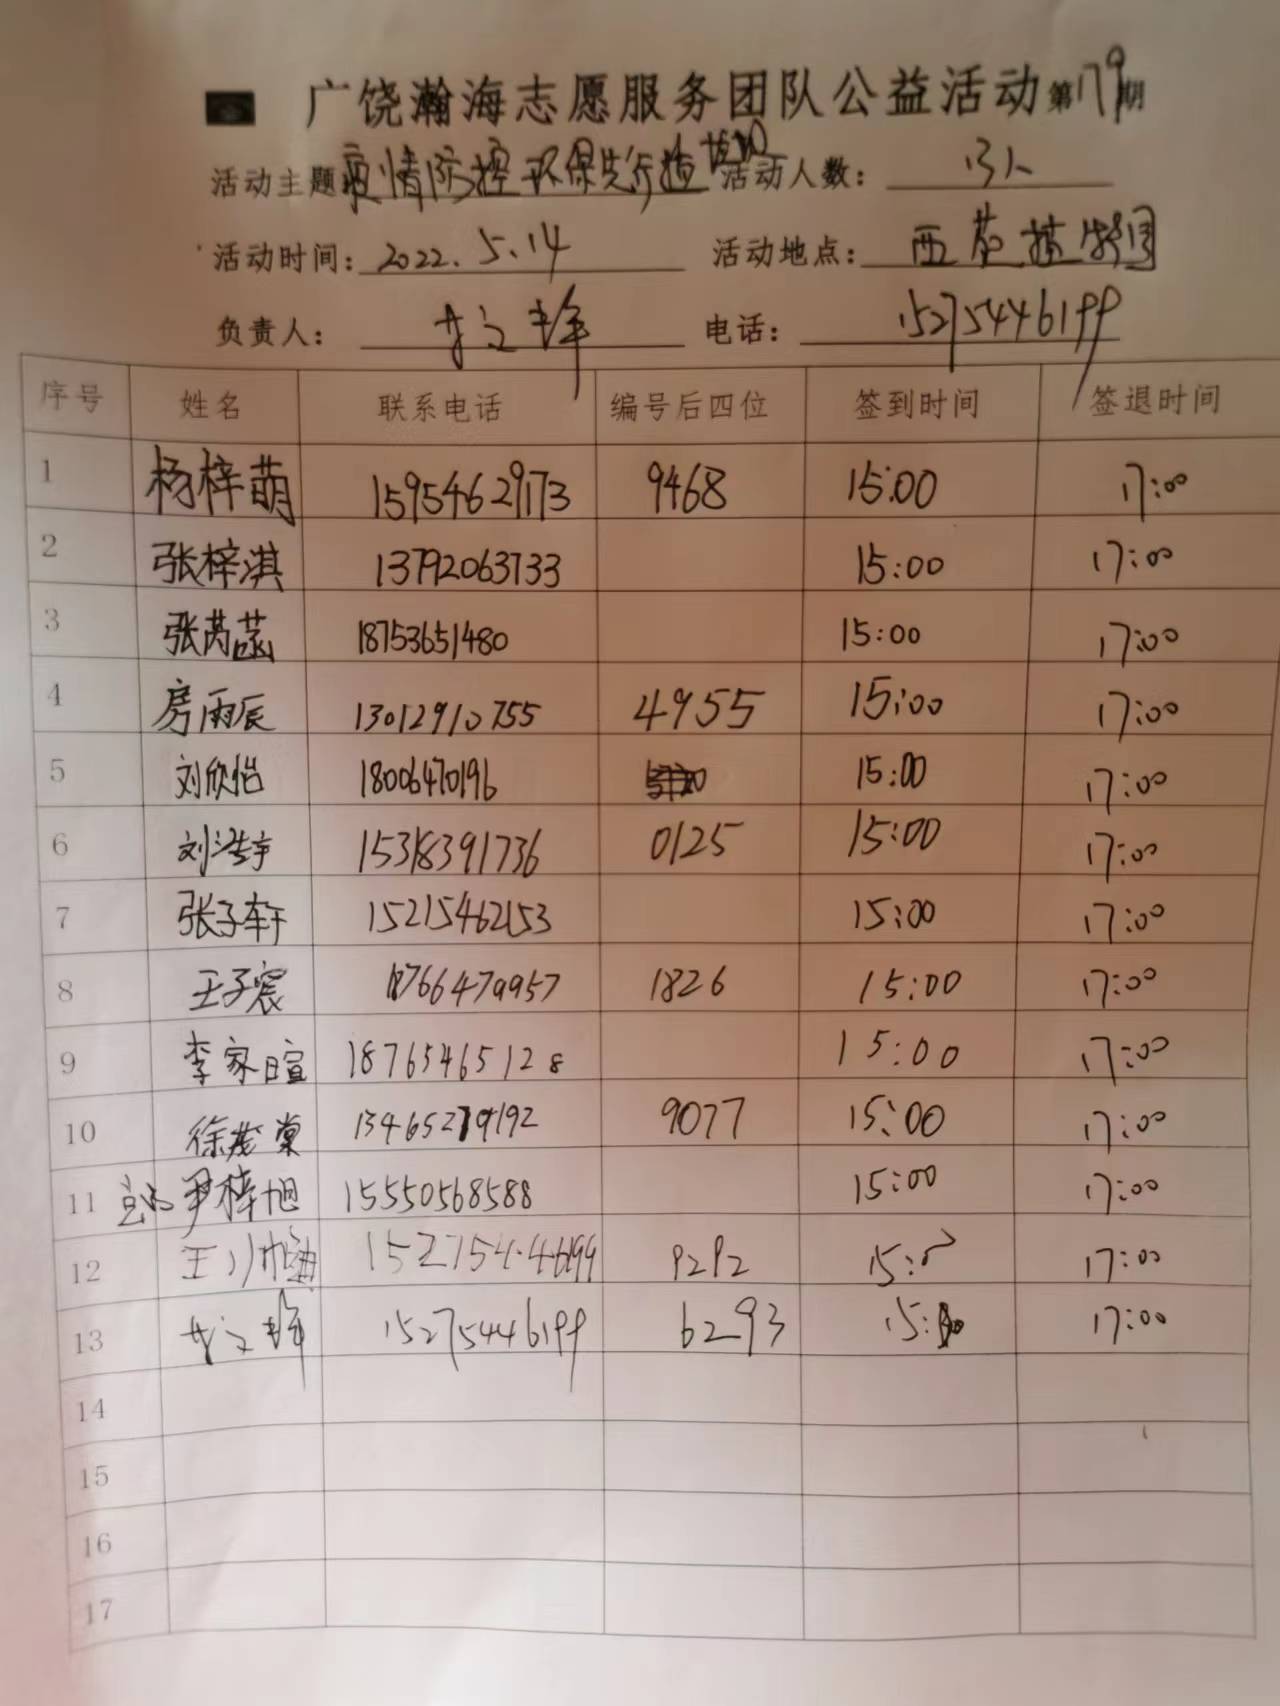 广饶瀚海志愿服务团队公益活动第179期
活动主题 疫情防控 环保先行 活动人数: 13人
活动时间: 2022.5.14 活动地点: 西
负责人: 电话: 15275446199
序号 姓名 联系电话 编号后四位 签到时间 签退时间
1 杨梓萌 15954629173 9468 15:00 17:00
2 张梓淇 13792063733 15:00 17:00
3 张芮菡 18753651480 15:00 17:00
4 房雨辰 13012910755 4955 15:00 17:00
5 刘欣怡 18006470196 15:00 17:00
6 刘浩宇 15318391736 0125 15:00 17:00
7 张子轩 15215462153 15:00 17:00
8 王子宸 18766479957 1826 15:00 17:00
9 李家暄 18765465128 15:00 17:00
10 徐茂棠 13465279192 9077 15:00 17:00
11 尹梓旭 15550568588 15:00 17:00
12 王 15275446199 9292 15:0 17:00
13 15275446199 6293 15:00 17:00
14
15
16
17